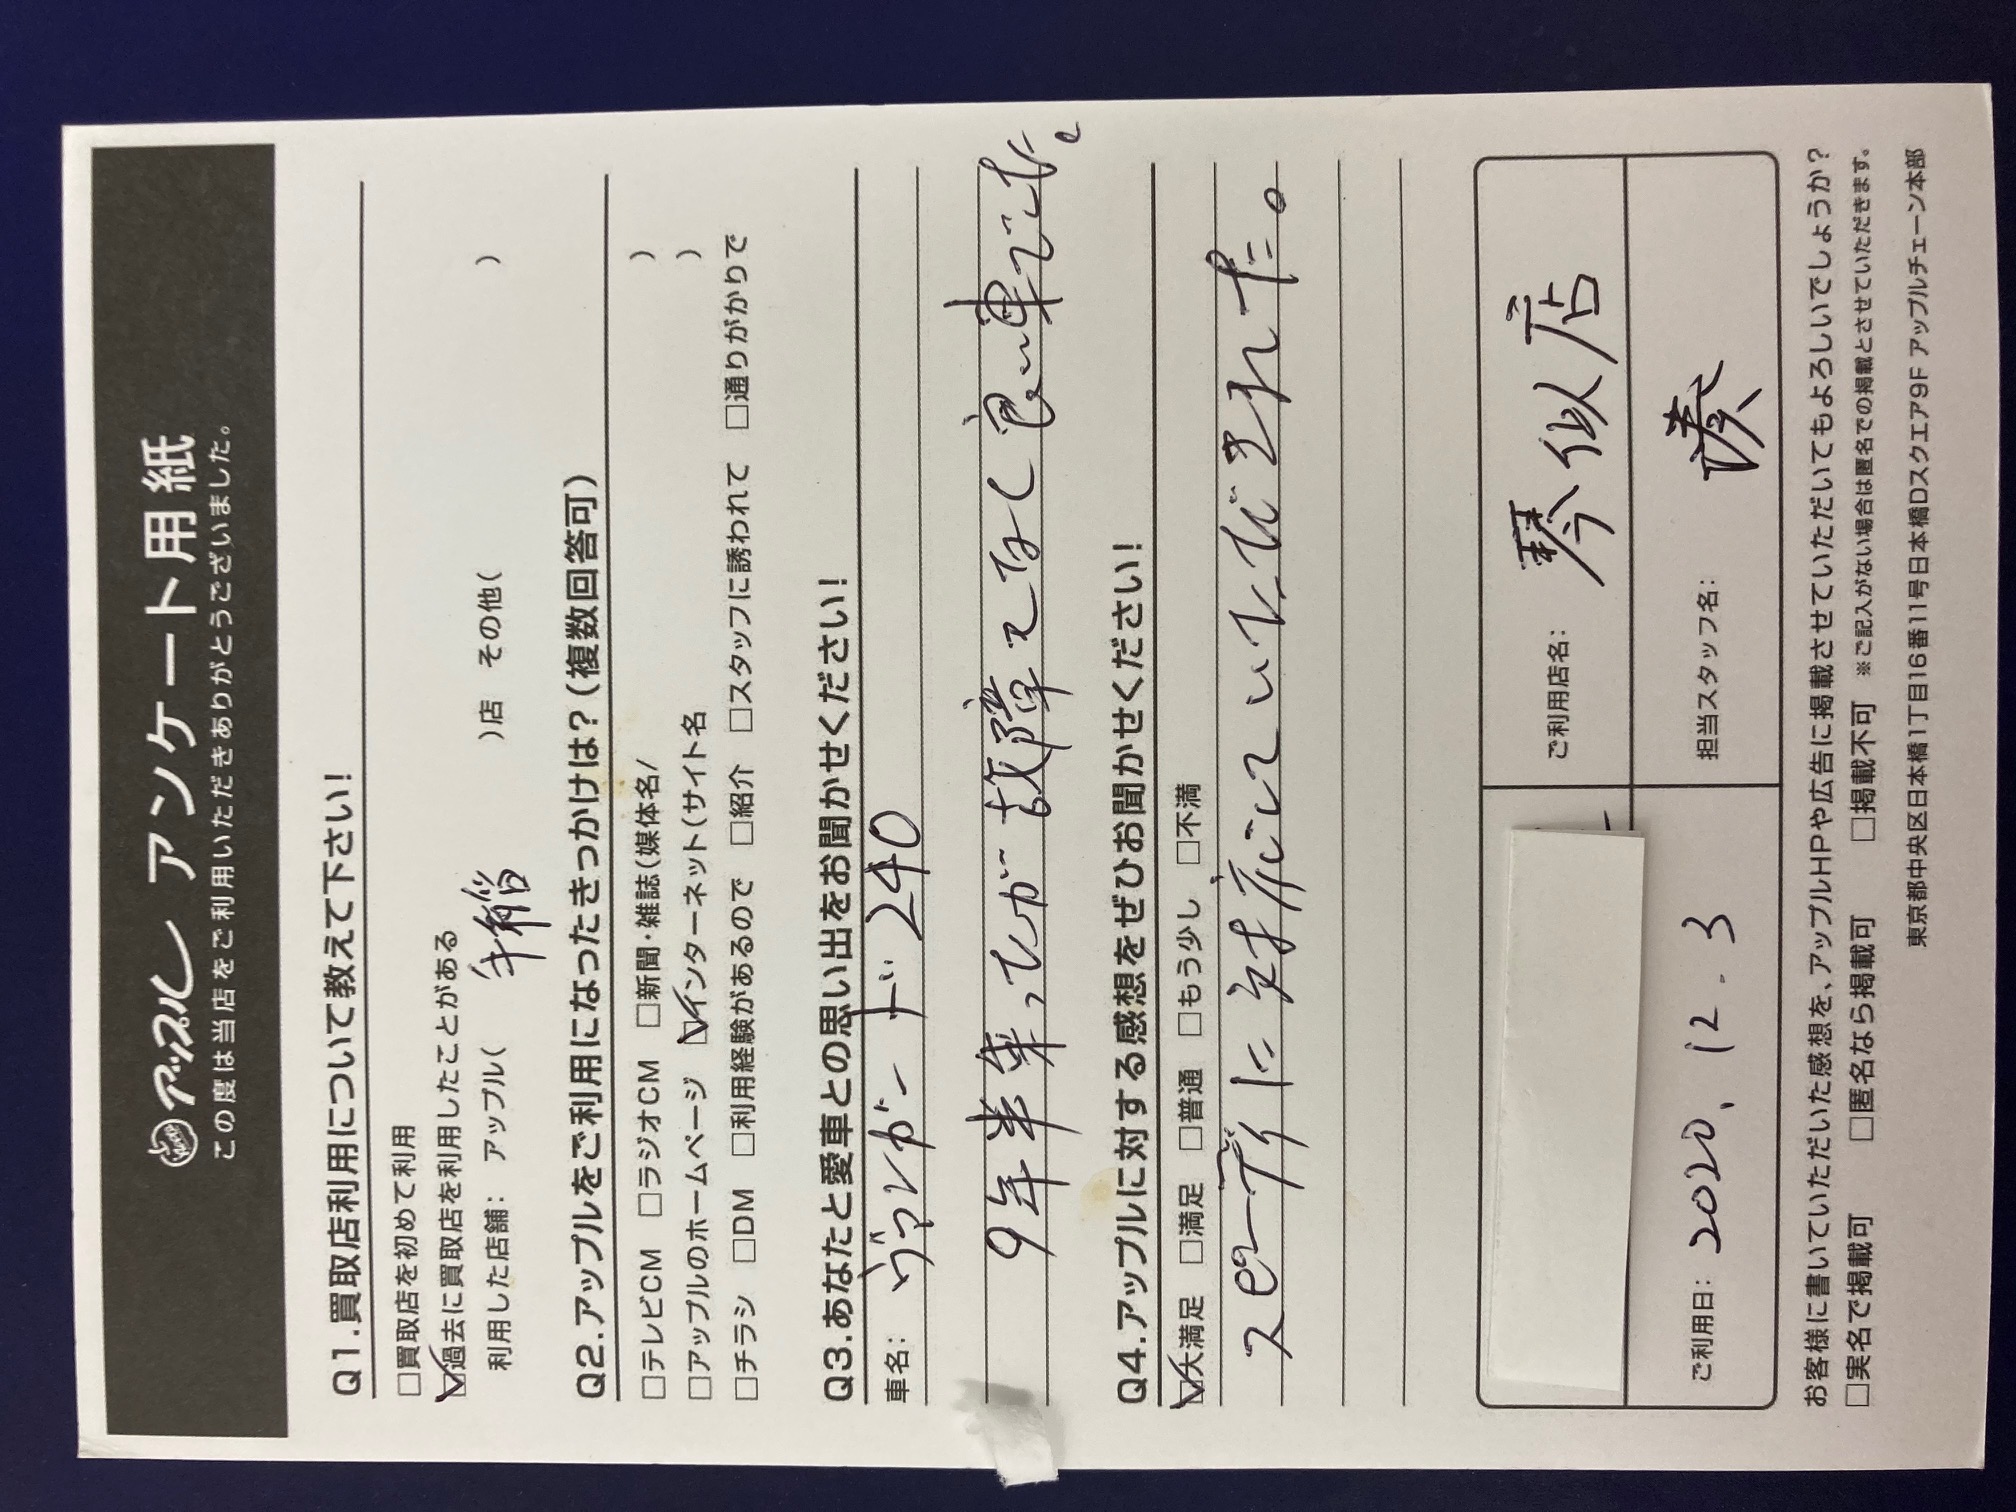 アップル アンケート用紙
この度は当店をご利用いただきありがとうございました。
Q1.買取店利用について教えて下さい!
□買取店を初めて利用
☑過去に買取店を利用したことがある
利用した店舗: アップル( 手稲 )店 その他( )
Q2.アップルをご利用になったきっかけは?(複数回答可)
□テレビCM □ラジオCM □新聞・雑誌(媒体名/ )
□アップルのホームページ ☑インターネット(サイト名 )
□チラシ □DM □利用経験があるので □紹介 □スタッフに誘われて □通りがかりで
Q3.あなたと愛車との思い出をお聞かせください!
車名: ヴァンガード240
9年半乗ったが故障もなく良い車でした。
Q4.アップルに対する感想をぜひお聞かせください!
☑大満足 □満足 □普通 □もう少し □不満
スピーディに対応していただきました。
ご利用店名: 琴似店
ご利用日: 2020.12.3 担当スタッフ名: 湊
お客様に書いていただいた感想を、アップルHPや広告に掲載させていただいてもよろしいでしょうか?
□実名で掲載可 □匿名なら掲載可 □掲載不可 ※ご記入がない場合は匿名での掲載とさせていただきます。
東京都中央区日本橋1丁目16番11号日本橋Dスクエア9F アップルチェーン本部